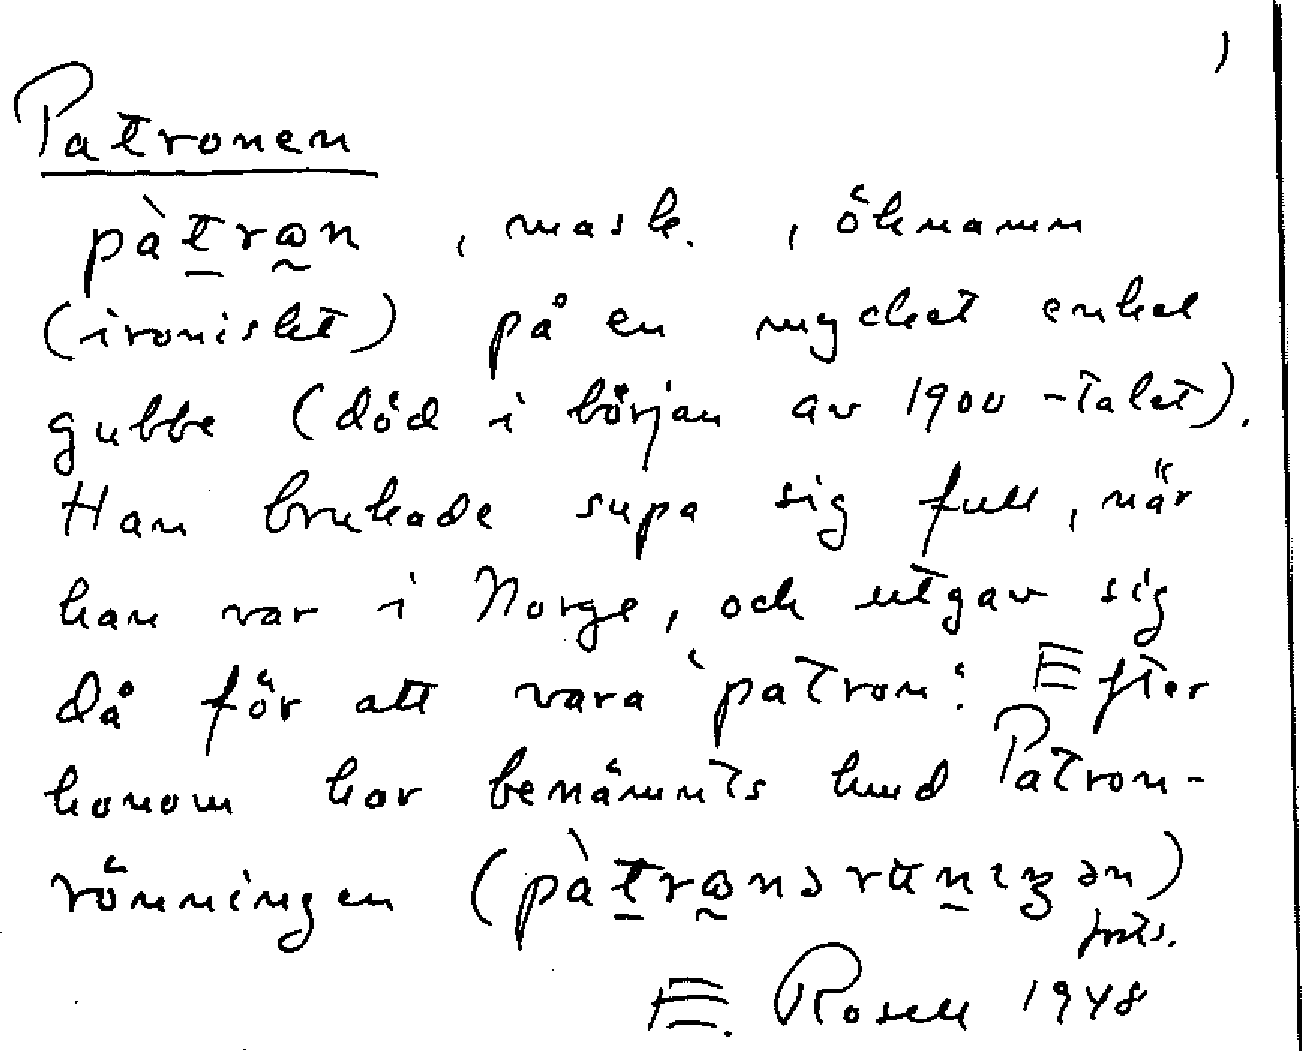 )
Patronen
pàt̠ra̰n , mask. , öknamn
(ironiskt) på en mycket enkel
gubbe (död i början av 1900-talet).
Han brukade supa sig full, när
han var i Norge, och utgav sig
då för att vara 'patron'. Efter
honom har benämnts hmd Patron-
rönningen (pàt̠ra̰nsrün̠iŋən)
forts.
E. Rosell 1948